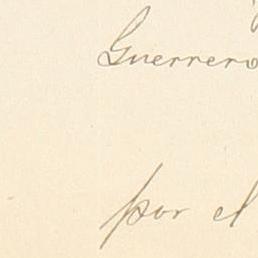 Guerrero
por el